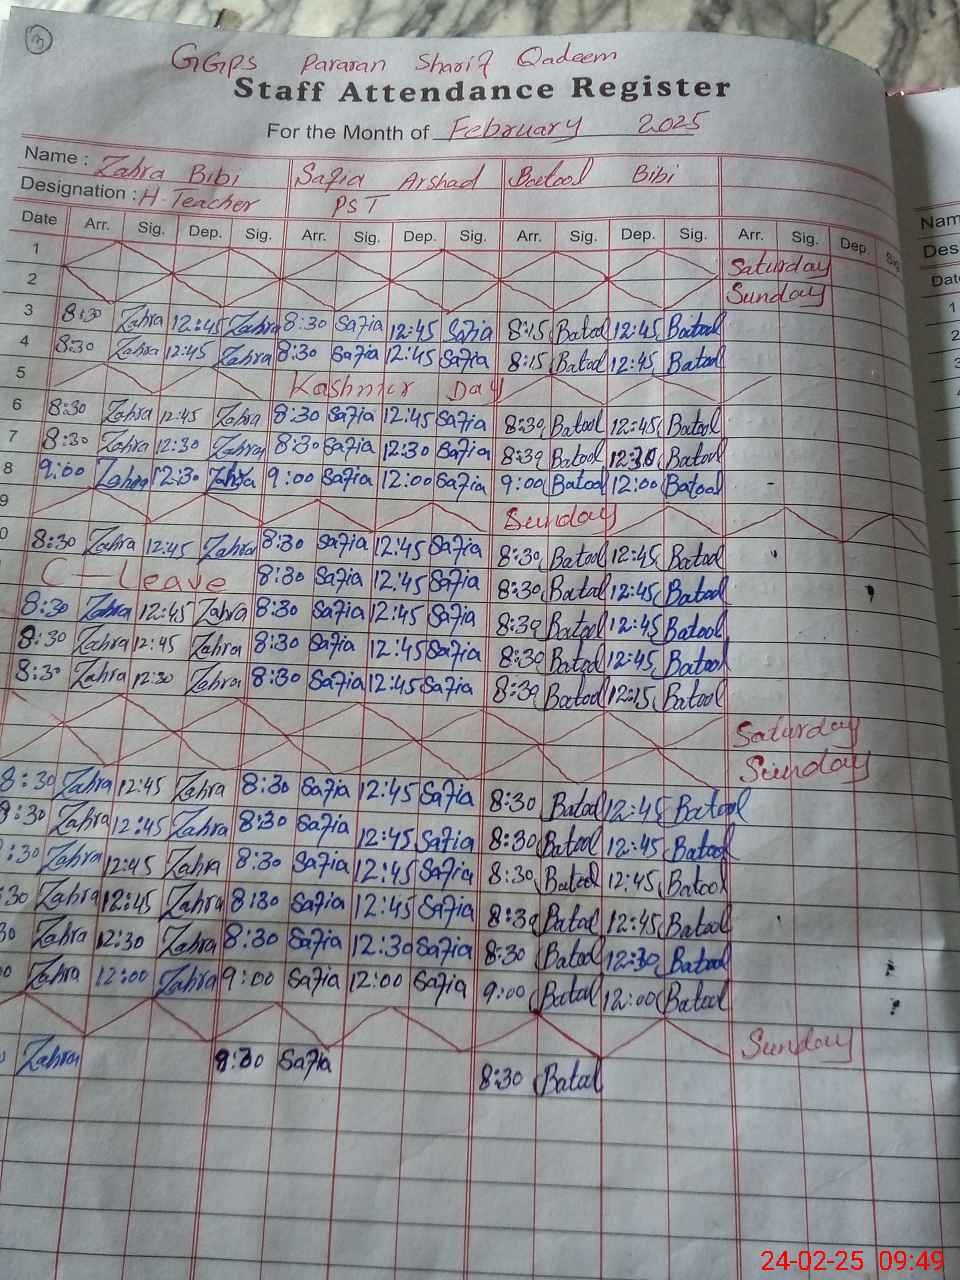 3
GGPS Pararan Sharif Qadeem
Staff Attendance Register
For the Month of February 2025
Name : Zahra Bibi Safia Arshad Batool Bibi
Designation : H.Teacher PST
Date Arr. Sig. Dep. Sig. Arr. Sig. Dep. Sig. Arr. Sig. Dep. Sig. Arr. Sig. Dep. Sig.
1 Saturday
2 Sunday
3 8:30 Zahra 12:45 Zahra 8:30 Safia 12:45 Safia 8:15 Batool 12:45 Batool
4 8:30 Zahra 12:45 Zahra 8:30 Safia 12:45 Safia 8:15 Batool 12:45 Batool
5 Kashmir Day
6 8:30 Zahra 12:45 Zahra 8:30 Safia 12:45 Safia 8:30 Batool 12:45 Batool
7 8:30 Zahra 12:30 Zahra 8:30 Safia 12:30 Safia 8:30 Batool 12:30 Batool
8 9:00 Zahra 12:30 Zahra 9:00 Safia 12:00 Safia 9:00 Batool 12:00 Batool
9 Sunday
0 8:30 Zahra 12:45 Zahra 8:30 Safia 12:45 Safia 8:30 Batool 12:45 Batool
C-Leave 8:30 Safia 12:45 Safia 8:30 Batool 12:45 Batool
8:30 Zahra 12:45 Zahra 8:30 Safia 12:45 Safia 8:30 Batool 12:45 Batool
8:30 Zahra 12:45 Zahra 8:30 Safia 12:45 Safia 8:30 Batool 12:45 Batool
8:30 Zahra 12:30 Zahra 8:30 Safia 12:45 Safia 8:30 Batool 12:15 Batool
Saturday
Sunday
8:30 Zahra 12:45 Zahra 8:30 Safia 12:45 Safia 8:30 Batool 12:45 Batool
8:30 Zahra 12:45 Zahra 8:30 Safia 12:45 Safia 8:30 Batool 12:45 Batool
:30 Zahra 12:45 Zahra 8:30 Safia 12:45 Safia 8:30 Batool 12:45 Batool
:30 Zahra 12:45 Zahra 8:30 Safia 12:45 Safia 8:30 Batool 12:45 Batool
30 Zahra 12:30 Zahra 8:30 Safia 12:30 Safia 8:30 Batool 12:30 Batool
0 Zahra 12:00 Zahra 9:00 Safia 12:00 Safia 9:00 Batool 12:00 Batool
Sunday
Zahra 8:30 Safia 8:30 Batool
Nam
Des
Dat
1
2
3
24-02-25 09:49